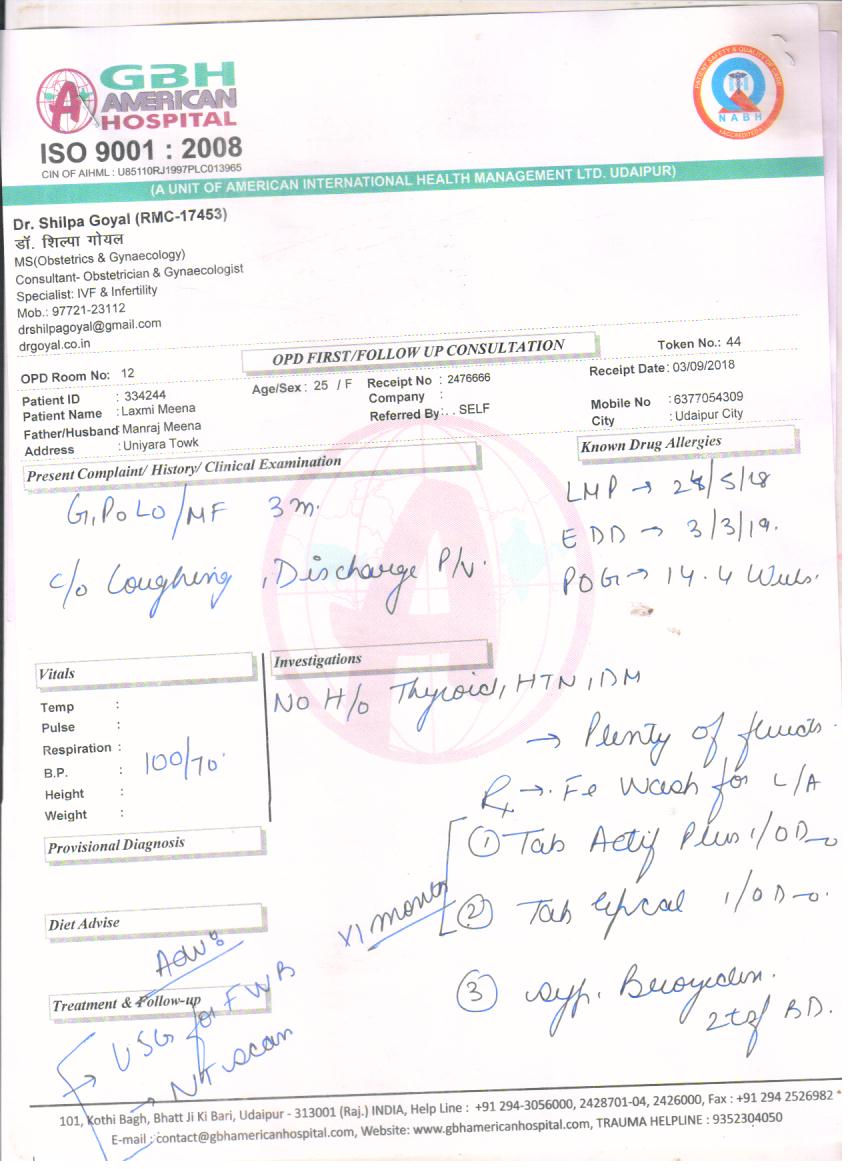 GBH
AMERICAN
HOSPITAL
ISO 9001 : 2008
CIN OF AIHML : U85110RJ1997PLC013965
PATIENT SAFETY & QUALITY OF CARE
NABH
ACCREDITED
(A UNIT OF AMERICAN INTERNATIONAL HEALTH MANAGEMENT LTD. UDAIPUR)
Dr. Shilpa Goyal (RMC-17453)
डॉ. शिल्पा गोयल
MS(Obstetrics & Gynaecology)
Consultant- Obstetrician & Gynaecologist
Specialist: IVF & Infertility
Mob.: 97721-23112
drshilpagoyal@gmail.com
drgoyal.co.in
OPD FIRST/FOLLOW UP CONSULTATION
Token No.: 44
OPD Room No: 12
Patient ID : 334244
Age/Sex : 25 / F
Receipt No : 2476666
Receipt Date: 03/09/2018
Patient Name : Laxmi Meena
Company :
Mobile No : 6377054309
Father/Husband Manraj Meena
Referred By: . . SELF
City : Udaipur City
Address : Uniyara Towk
Present Complaint/ History/ Clinical Examination
Known Drug Allergies
G1P0L0/MF 3m.
LMP → /5/18
EDD → 3/3/19.
c/o Coughing, Discharge P/V.
POG → 14.4 Weeks.
Vitals
Investigations
Temp :
Pulse :
Respiration :
B.P. : 100/70
Height :
Weight :
NO H/o Thyroid, HTN, DM
→ Plenty of fluids.
Rx → Wash for L/A
① Tab Actif Plus 1/OD
② Tab 1/OD
X1 month
③ Syp. 2tsf BD.
Provisional Diagnosis
Diet Advise
Adv:
Treatment & Follow-up
→ USG for FWB
→ NT scan
101, Kothi Bagh, Bhatt Ji Ki Bari, Udaipur - 313001 (Raj.) INDIA, Help Line : +91 294-3056000, 2428701-04, 2426000, Fax : +91 294 2526982 *
E-mail : contact@gbhamericanhospital.com, Website: www.gbhamericanhospital.com, TRAUMA HELPLINE : 9352304050